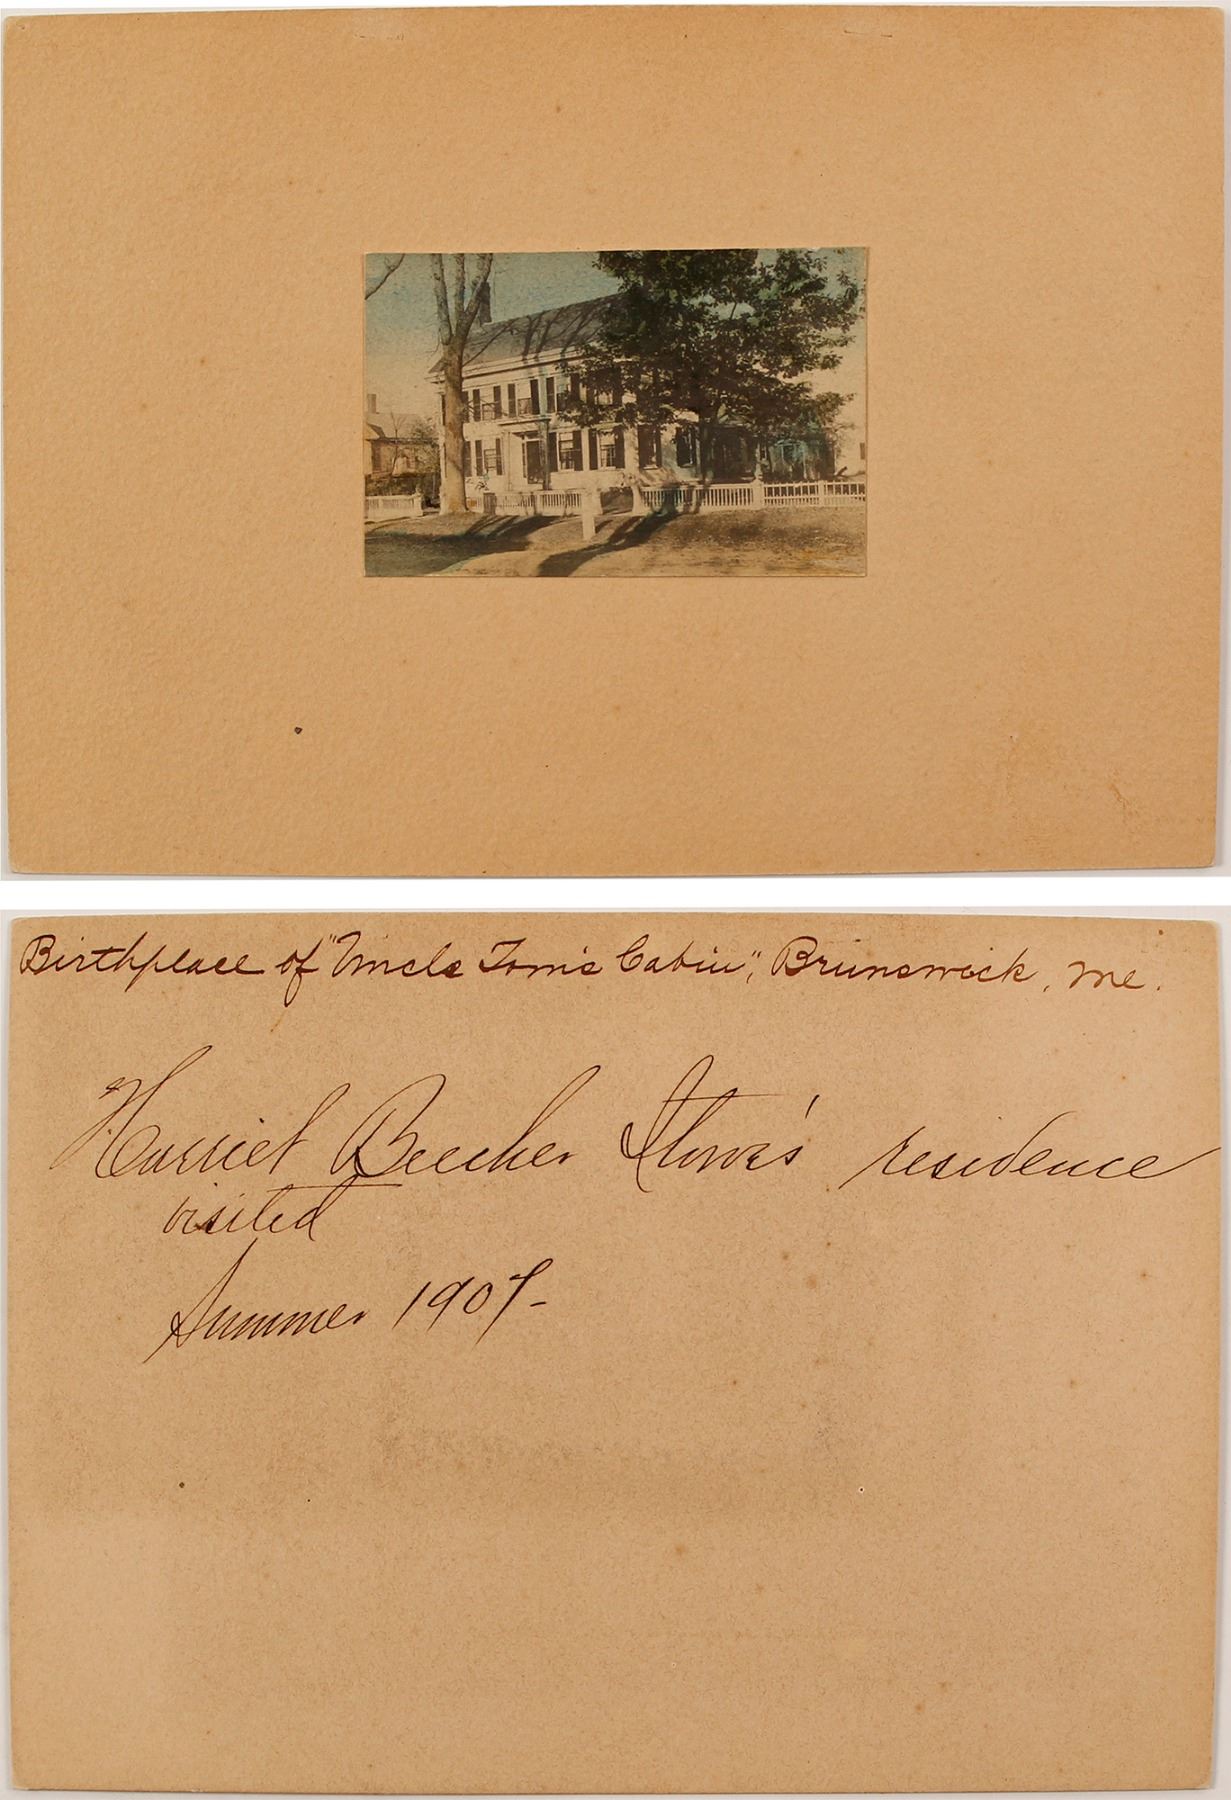 Birthplace of "Uncle Tom's Cabin", Brunswick, Me.
Harriet Beecher Stowes' residence
visited
Summer 1907-